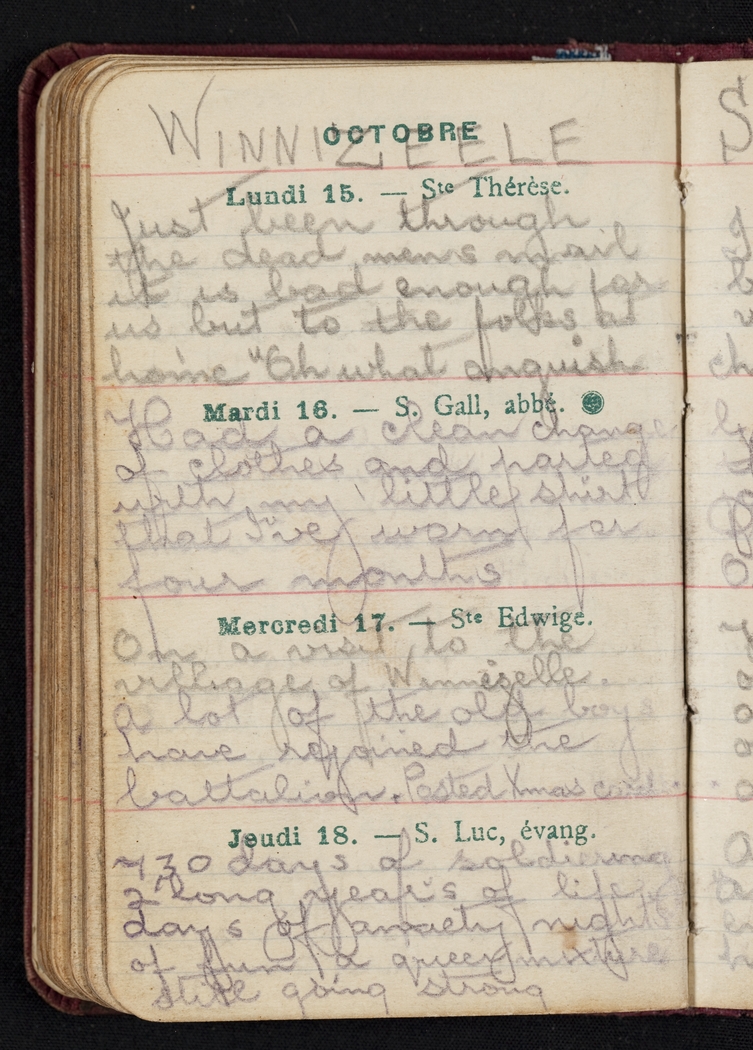 WINNIZEELE
OCTOBRE
Lundi 15. — Ste Thérèse.
Just been through
the dead mens mail
it is bad enough for
us but to the folks at
home "Oh what anguish
Mardi 16. — S. Gall, abbé.
Had a clean change
of clothes and parted
with my little shirt
that I've worn for
four months
Mercredi 17. — Ste Edwige.
On a visit to the
village of Winnezelle.
A lot of the old boys
have rejoined the
battalion. Posted Xmas card
Jeudi 18. — S. Luc, évang.
730 days of soldiering
2 long years of life
days of anxiety nights
of fun a queer mixture
still going strong